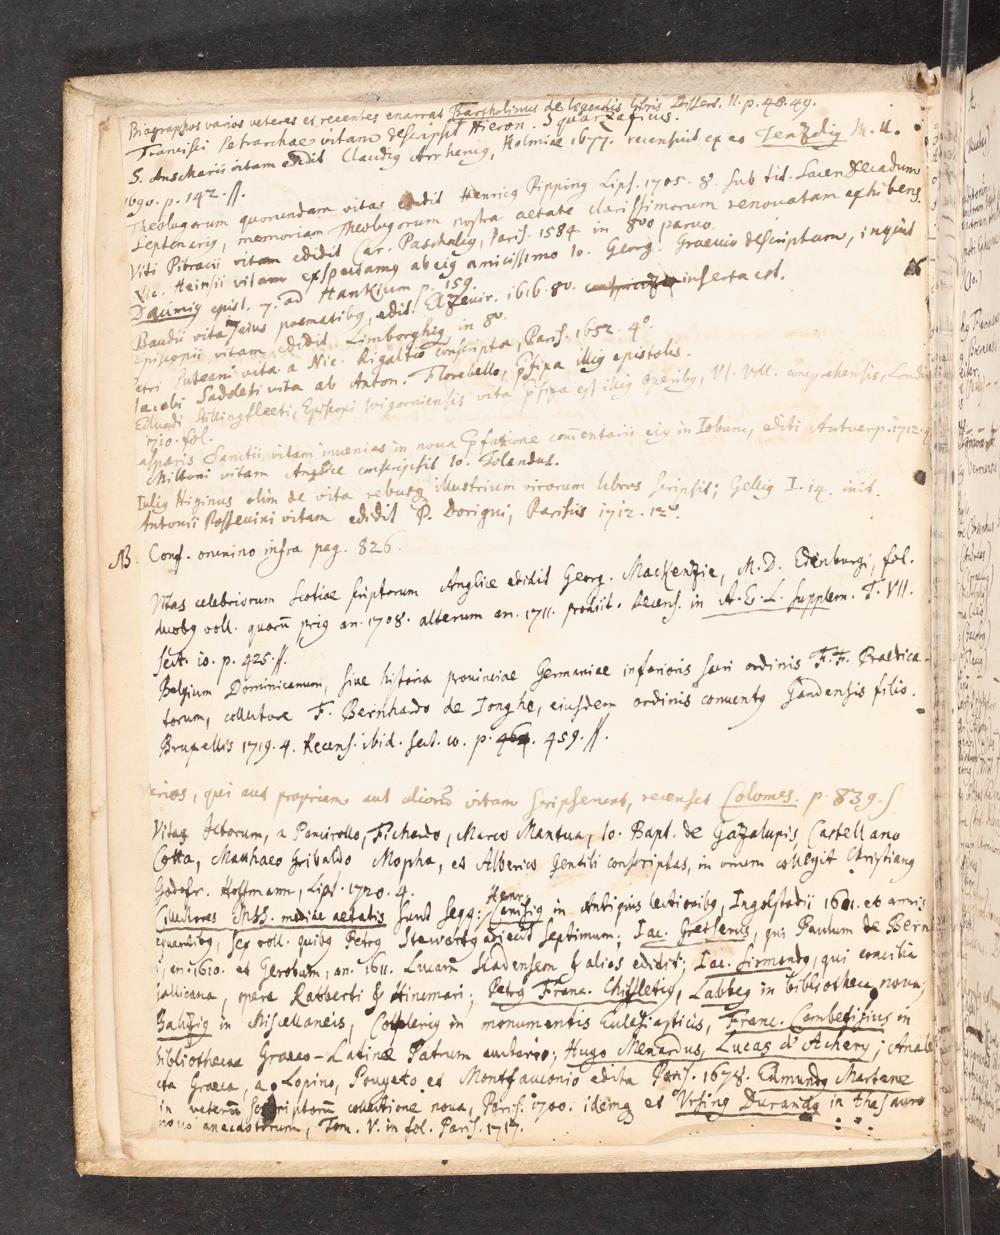 Biographos varios veteres et recentes enarrat Bartholinus de legendis libris Dissert. II. p. 48. 49.
Francisci Petrarchae vitam descripsit Hieron. Squarzaficus.
S. Anscharii vitam edidit Claudiq Arrheniq, Holmiae 1677. recensuit ex eo Tenzeliq M. U.
1690. p. 142. ss.
Theologorum quorundam vitas edidit Henricq Pipping Lips. 1705. 8. sub tit. Sacer decadum
Septenariq, memoriam Theologorum nostra aetate clarissimorum renovatam exhibens.
Viti Pibracii vitam edidit Car. Paschaliq, Paris. 1584. in 8vo parvo.
Nic. Heinsii vitam exspectamq ab eiq amicissimo Io. Georg. Graevio descriptam, inquit
Daumiq epist. 7. ad Hankium p. 159.
Baudii vita eius poematibq, edit. Elzevir. 1616. 80. inserta est.
Episcopii vitam edidit Limborghiq in 80.
Petri Puteani vita a Nic. Rigaltio conscripta, Paris. 1652. 4°.
Iacobi Sadoleti vita ab Anton. Florebello, pfixa illiq epistolis.
Eduardi Stillingfleeti, Episcopi Wigorniensis vita pfixa est illiq operibq, VI. voll. comprehensis, Londin
1710. fol.
asparis Sanctii vitam invenias in nova pfatione com̄entarii eiq in Iobum, editi Antverp. 1712.
Miltoni vitam Anglice conscripsit Io. Tolandus.
Iuliq Higinus olim de vita rebusq illustrium virorum libros scripsit; Gelliq I. 14. init.
Antonii Possevini vitam edidit P. Dorigni, Parisiis 1712. 12°.
NB. Conf. omnino infra pag. 826.
Vitas celebriorum Scotiae scriptorum Anglice edidit Georg. Mackenzie, M. D. Edenburgi, fol.
duobq voll. quorū priq an. 1708. alterum an. 1711. prodiit. Recens. in A. E. L. Supplem. T. VII.
sect. 10. p. 425. ss.
Belgium Dominicanum, sive historia provinciae Germaniae inferioris sacri ordinis F. F. Praedica-
torum, collectore F. Bernhardo de Ionghe, eiusdem ordinis conventq Gandensis filio.
Bruxellis 1719. 4. Recens. ibid. sect. 10. p. 459. ss.
Varios, qui aut propriam aut aliorū vitam scripserunt, recenset Colomes. p. 839. s
Vitas Ictorum, a Pancirollo, Fichardo, Marco Mantua, Io. Bapt. de Gazalupis, Castellano
Cotta, Matthaeo Gribaldo Mopha, et Alberico Gentili conscriptas, in unum collegit Christianq
Godofr. Hoffmann, Lips. 1720. 4.
Collectores MSS. mediae aetatis sunt seqq: Henr. Canisiq in Antiquis lectionibq, Ingolstadii 1601. et annis
equentibq, sex voll. quibq Petrq Stewartq adiecit septimum; Iac. Gretserus, qui Paulum de Bern
, an. 1610. et Gerobum, an. 1611. Lucam Tudensem & alios edidit; Iac. Sirmondq, qui concilia
Gallicana, opera Ratberti & Hincmari; Petrq Franc. Chiffletiq, Labbeq in bibliotheca nova;
Baluziq in Miscellaneis, Coteleriq in monumentis Ecclesiasticis, Franc. Combefisius in
bibliothecae Graeco-Latinae Patrum auctario; Hugo Menardus, Lucas d'Achery; Anale
cta Graeca, a Lopino, Pougeto et Montfauconio edita Paris. 1678. Edmundq Martene
in veterū scriptorū collectione nova, Paris. 1700. idemq et Ursinq Durandq in thesauro
novo anecdotorum, Tom. V. in fol. Paris. 1717.